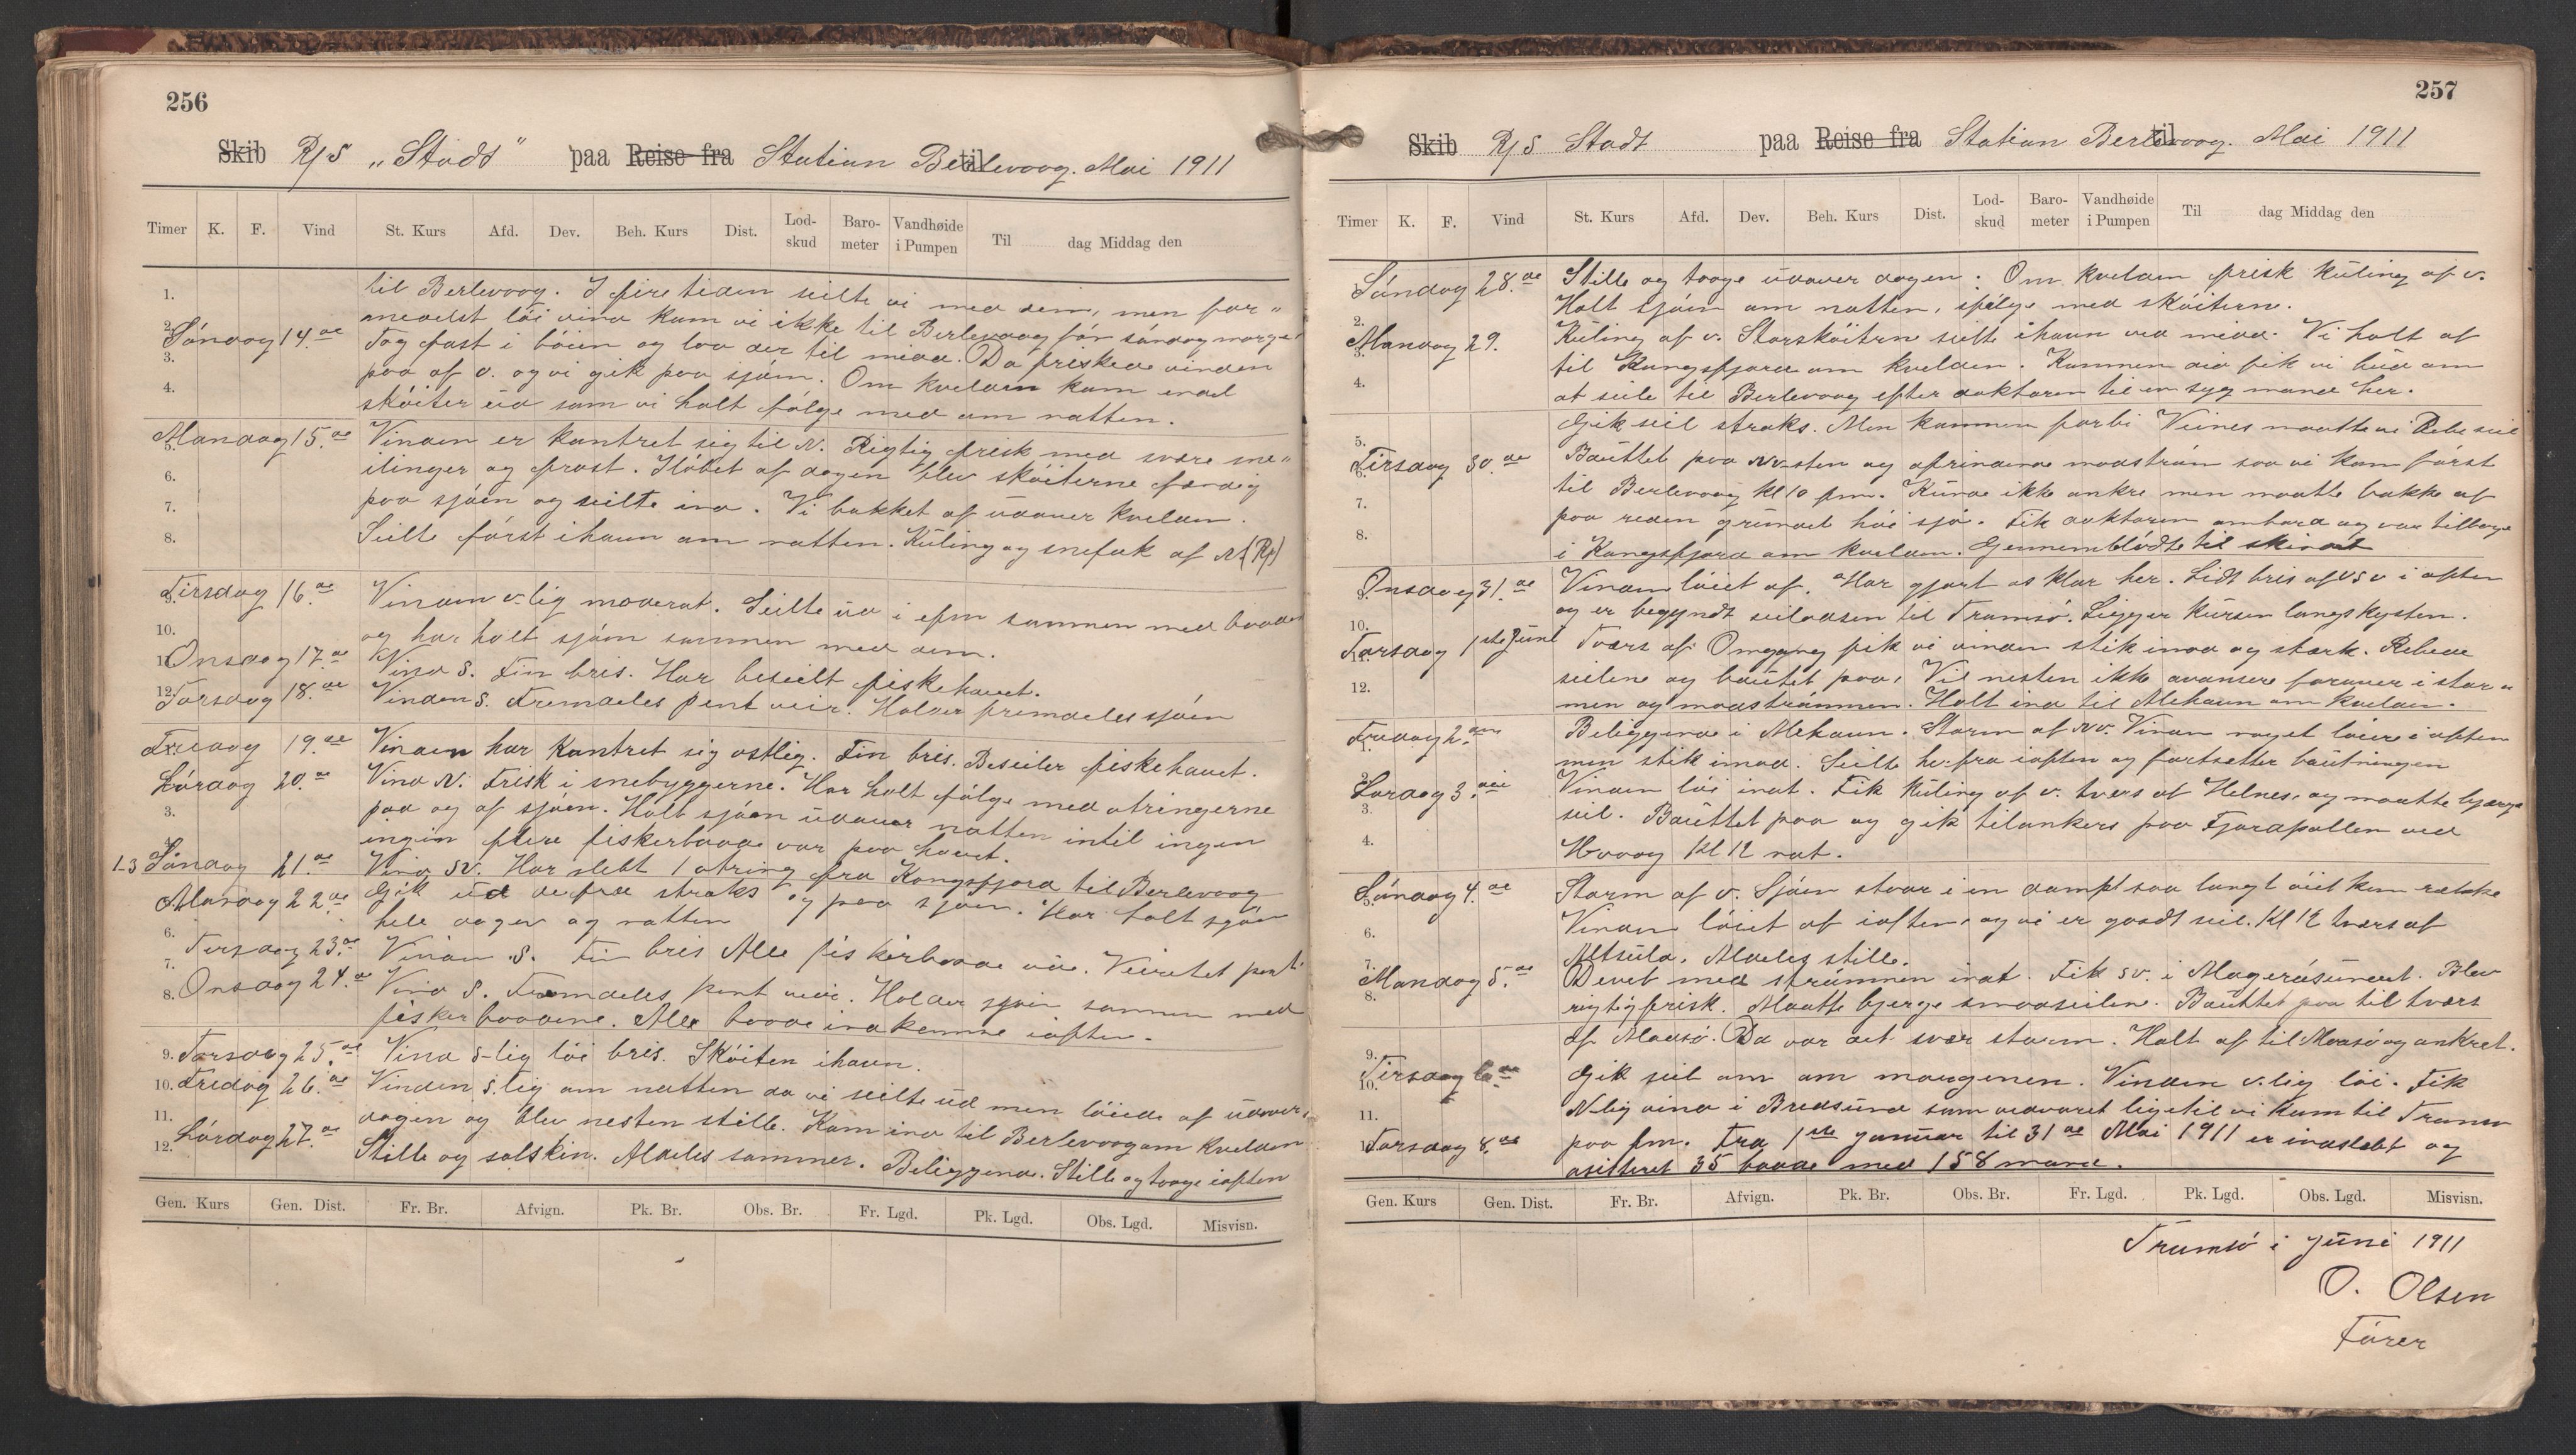 256
Skib R/S „Stadt" paa Reise fra Station Berlevaag. til Mai 1911
Timer K. F. Vind St. Kurs Afd. Dev. Beh. Kurs Dist. Lod-skud Baro-meter Vandhøide i Pumpen Til dag Middag den
til Berlevaag. I firetiden seilte vi med dem, men for"
medelst löi vind kom vi ikke til Berlevaag för söndag morgen
Söndag 14.de Tog fast i böien og laa der til midd. Da friskede vinden
paa af v. og vi gik paa sjöen. Om kvelden kom endel
sköiter ud som vi holt fölge med om natten.
Mandag 15.de Vinden er kantret sig til N. Rigtig frisk med svære sne"
ilinger og frost. I löbet af dagen blev sköiterne færdig
paa sjöen og seilte ind. Vi bakket af udover kvelden.
Seilte först ihavn om natten. Kuling og snefok af N (R/s)
Tirsdag 16.de Vinden v-lig moderat. Seilte ud i efm sammen med baadene
og har holt sjöen sammen med dem.
Onsdag 17.de Vind S. Fin bris. Har beseilt fiskehavet.
Torsdag 18.de Vinden S. Fremdeles pent veir. Holder fremdeles sjöen
Fredag 19.de Vinden har kantret sig ostlig. Fin bris. Beseiler fiskehavet.
Lördag 20.de Vind N. Frisk i snebyggerne. Har holt fölge med otringerne
paa og af sjöen. Holt sjöen udover natten intil ingen
ingen flere fiskerbaade var paa havet.
1-3 Söndag 21.de Vind SV. Har slebt 1 otring fra Kongsfjord til Berlevaag
Mandag 22.de Gik ud derfra straks og paa sjöen. Har holt sjöen
hele dagen og natten
Tirsdag 23.de Vinden S. Fin bris Alle fiskerbaade ude. Veiret et pent.
Onsdag 24.de Vind S. Fremdeles pent veir. Holder sjöen sammen med
fiskerbaadene. Alle baade indkomne iaften.
Torsdag 25.de Vind S-lig löi bris. Sköiten ihavn.
Fredag 26.de Vinden S.lig om natten da vi seilte ud men löiede af udover
dagen og blev nesten stille. Kom ind til Berlevaag om kvelden
Lördag 27.de Stille og solskin. Aldeles sommer. Beliggende. Stille og taage iaften
1. 2. 3. 4. 5. 6. 7. 8. 9. 10. 11. 12.
3. 6. 7. 8. 9. 10. 11. 12.
Gen. Kurs Gen. Dist. Fr. Br. Afvign. Pk. Br. Obs. Br. Fr. Lgd. Pk. Lgd. Obs. Lgd. Misvisn.
257
Skib R/S Stadt paa Reise fra Station Berlevaag. til Mai 1911
Timer K. F. Vind St. Kurs Afd. Dev. Beh. Kurs Dist. Lod-skud Baro-meter Vandhøide i Pumpen Til dag Middag den
Söndag 28.de Stille og taage udover dagen. Om kvelden frisk kuling af v.
Holt sjöen om natten, ifölge med sköitern.
Mandag 29. Kuling af v. Storsköitern seilte ihavn ved midd. Vi holt af
til Kongsfjord om kvelden. Kommen did fik vi bud om
at seile til Berlevaag efter doktoren til en syg mand her.
Gik seil straks. Men kommen forbi Veines maatte vi Rebe seil
Tirsdag 30.de Bauttet paa NV-sten og afrindende modström saa vi kom först
til Berlevaag kl 10 fm. Kunde ikke ankre men maatte bakke af
paa reden grundet höi sjö. Fik doktoren ombord og var tilbage
i Kongsfjord om kvelden. Gennemblödte til skindet
Onsdag 31.de Vinden löiet af. Har gjort os klar her. Lidt bris af VSV i aften
og er begyndt seiladsen til Tromsö. Ligger kursen langs kysten.
Torsdag 1ste Juni Tværs af Omgang fik vi vinden stik imod og stærk. Rebede
seilene og bautet paa. Vil nesten ikke avansere forover i stor"
men og modströmmen. Holt ind til Mehavn om kvelden.
Fredag 2.den Beliggende i Mehavn. Storm af NV. Vinden noget löiere i aften
men stik imod. Seilte herfra iaften og fortsetter bautningen
Lördag 3.die Vinden löi inat. Fik kuling af v. tvers af Helnes, og maatte bjærge
seil. Bauttet paa og gik tilankers paa Fjordpollen ved
Kl 12 nat.
Söndag 4.de Storm af V. Sjöen staar i en damp saa langt öiet kan række
Vinden löiet af iaften, og vi er gaadt seil. Kl 12 tværs af
Altsula. Aldeles stille.
Mandag 5.de Drevet med strömmen inat. Fik SV. i Magerösundet. Blev
rigtig frisk. Maatte bjerge smaaseilene. Bauttet paa til tværs
af Maasö. Da var det svær storm. Holt af til Maasö og ankret.
Tirsdag 6.de Gik seil om om morgenen. Vinden v.lig löi. Fik
N-lig vind i Bredsund som vedvaret ligetil vi kom til Tromsö
Torsdag 8.de paa fm. Fra 1ste Januar til 31de Mai 1911 er indslebt og
asisteret 35 baade med 158 mand.
2. 4. 5. 6. 7. 8. 9. 10. 11. 12.
3. 4. 6. 7. 8. 9. 10. 11.
Gen. Kurs Gen. Dist. Fr. Br. Afvign. Pk. Br. Obs. Br. Fr. Lgd. Pk. Lgd. Obs. Lgd. Misvisn.
Tromsö i Juni 1911
O. Olsen
Förer